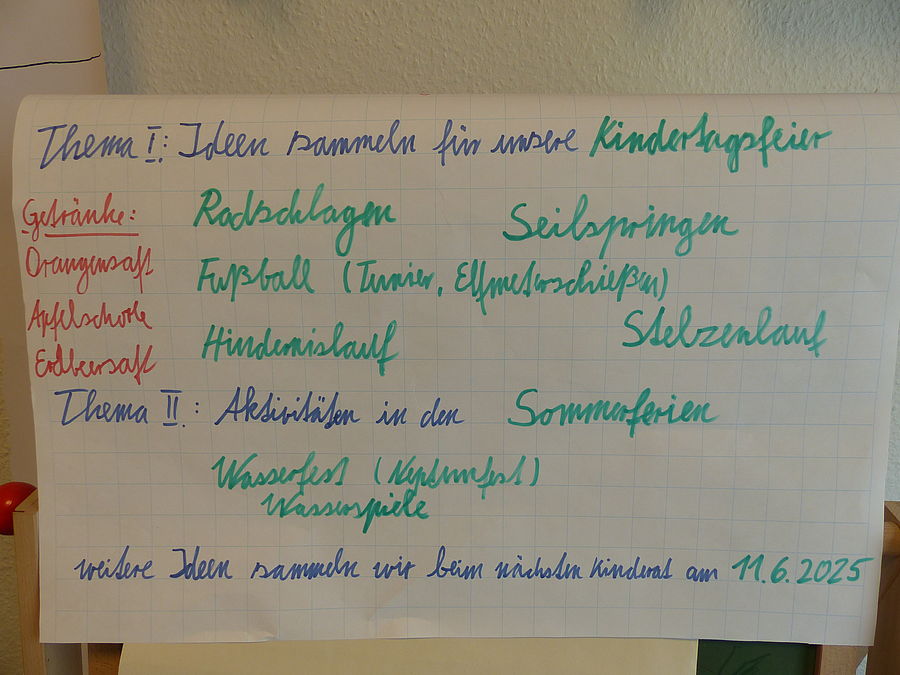 Thema I: Ideen sammeln für unsere Kindertagsfeier
Getränke:
Orangensaft
Apfelschorle
Erdbeersaft
Radschlagen
Seilspringen
Fußball (Tunier, Elfmeterschießen)
Hindernislauf
Stelzenlauf
Thema II: Aktivitäten in den Sommerferien
Wasserfest (Neptunfest)
Wasserspiele
weitere Ideen sammeln wir beim nächsten Kinderat am 11.6.2025